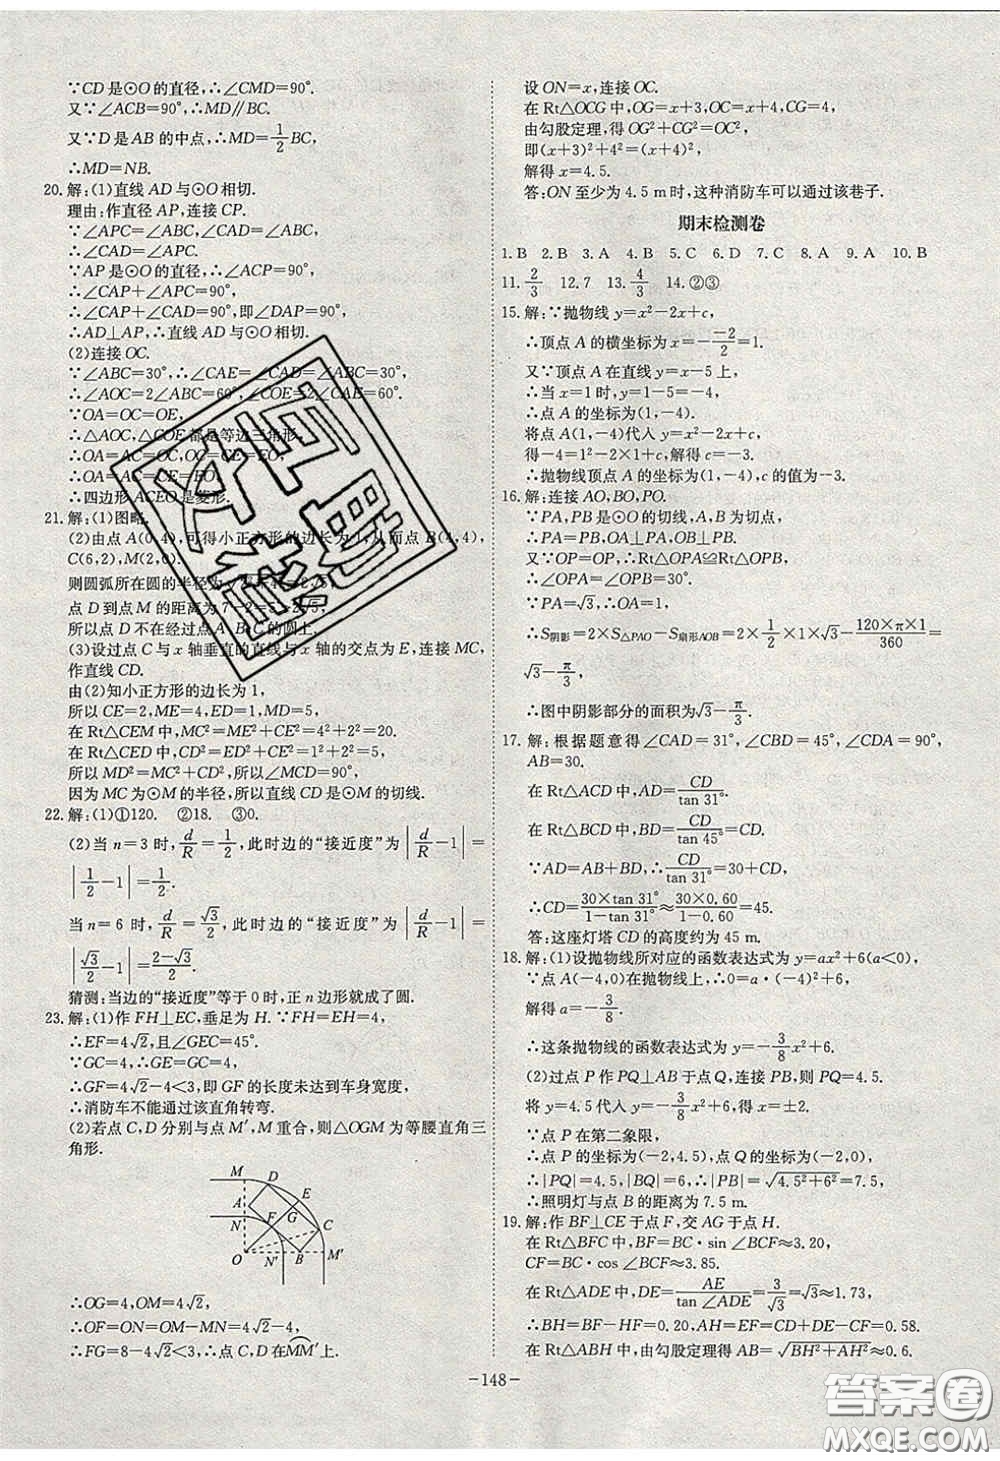 ∵CD是⊙O的直径,∴∠CMD=90°.
又∵∠ACB=90°,∴MD∥BC.
又∵D是AB的中点,∴MD=1/2BC,
∴MD=NB.
20.解:(1)直线AD与⊙O相切.
理由:作直径AP,连接CP.
∵∠APC=∠ABC,∠CAD=∠ABC,
∴∠CAD=∠APC.
∵AP是⊙O的直径,∴∠ACP=90°,
∴∠CAP+∠APC=90°,
∴∠CAP+∠CAD=90°,即∠DAP=90°,
∴AD⊥AP,∴直线AD与⊙O相切.
(2)连接OC.
∵∠ABC=30°,∴∠CAE=∠CAD=∠ABC=30°,
∴∠AOC=2∠ABC=60°,∠COE=2∠CAE=60°.
∵OA=OC=OE,
∴△AOC,△COE都是等边三角形,
∴OA=AC=OC,OC=CE=EO,
∴OA=AC=CE=EO,
∴四边形ACEO是菱形.
21.解:(1)图略.
(2)由点A(0,4),可得小正方形的边长为1,从而点B(4,4),
C(6,2),M(2,0).
则圆弧所在圆的半径为
点D到点M的距离为7-2=5>2√5,
所以点D不在经过点A,B,C的圆上.
(3)设过点C与x轴垂直的直线与x轴的交点为E,连接MC,
作直线CD.
由(2)知小正方形的边长为1,
所以CE=2,ME=4,ED=1,MD=5,
在Rt△CEM中,MC²=ME²+CE²=4²+2²=20.
在Rt△CED中,CD²=ED²+CE²=1²+2²=5,
所以MD²=MC²+CD²,所以∠MCD=90°.
因为MC为⊙M的半径,所以直线CD是⊙M的切线.
22.解:(1)①120. ②18. ③0.
(2)当n=3时,d/R=1/2,此时边的“接近度”为|d/R-1|=
|1/2-1|=1/2.
当n=6时,d/R=√3/2,此时边的“接近度”为|d/R-1|=
|√3/2-1|=(2-√3)/2.
猜测:当边的“接近度”等于0时,正n边形就成了圆.
23.解:(1)作FH⊥EC,垂足为H.∵FH=EH=4,
∴EF=4√2,且∠GEC=45°.
∵GC=4,∴GE=GC=4.
∴GF=4√2-4<3,即GF的长度未达到车身宽度,
∴消防车不能通过该直角转弯.
(2)若点C,D分别与点M′,M重合,则△OGM为等腰直角三
角形.
M D
A E
N F G C
O N′ B M′
∴OG=4,OM=4√2,
∴OF=ON=OM-MN=4√2-4,
∴FG=8-4√2<3,∴点C,D在MM′上.
设ON=x,连接OC.
在Rt△OCG中,OG=x+3,OC=x+4,CG=4,
由勾股定理,得OG²+CG²=OC²,
即(x+3)²+4²=(x+4)²,
解得x=4.5.
答:ON至少为4.5 m时,这种消防车可以通过该巷子.
期末检测卷
1.B 2.B 3.A 4.B 5.C 6.D 7.C 8.A 9.A 10.B
11.2/3 12.7 13.4/3 14.②③
15.解:∵抛物线y=x²-2x+c,
∴顶点A的横坐标为x=-(-2)/2=1.
又∵顶点A在直线y=x-5上,
∴当x=1时,y=1-5=-4,
∴点A的坐标为(1,-4).
将点A(1,-4)代入y=x²-2x+c,
得-4=1²-2×1+c,解得c=-3.
∴抛物线顶点A的坐标为(1,-4),c的值为-3.
16.解:连接AO,BO,PO.
∵PA,PB是⊙O的切线,A,B为切点,
∴PA=PB,OA⊥PA,OB⊥PB.
又∵OP=OP,∴Rt△OPA≌Rt△OPB,
∴∠OPA=∠OPB=30°.
∵PA=√3,∴OA=1,
∴S阴影=2×S△PAO-S扇形AOB=2×1/2×1×√3-(120×π×1)/360=
√3-π/3,
∴图中阴影部分的面积为√3-π/3.
17.解:根据题意得∠CAD=31°,∠CBD=45°,∠CDA=90°,
AB=30.
在Rt△ACD中,AD=CD/tan 31°.
在Rt△BCD中,BD=CD/tan 45°=CD.
∵AD=AB+BD,∴CD/tan 31°=30+CD,
∴CD=(30×tan 31°)/(1-tan 31°)≈(30×0.60)/(1-0.60)=45.
答:这座灯塔CD的高度约为45 m.
18.解:(1)设抛物线所对应的函数表达式为y=ax²+6(a<0),
∵点A(-4,0)在抛物线上,∴0=a·(-4)²+6,
解得a=-3/8.
∴这条抛物线的函数表达式为y=-3/8x²+6.
(2)过点P作PQ⊥AB于点Q,连接PB,则PQ=4.5.
将y=4.5代入y=-3/8x²+6,得x=±2.
∵点P在第二象限,
∴点P的坐标为(-2,4.5),点Q的坐标为(-2,0),
∴|PQ|=4.5,|BQ|=6,∴|PB|=√(4.5²+6²)=7.5,
∴照明灯与点B的距离为7.5 m.
19.解:作BF⊥CE于点F,交AG于点H.
在Rt△BFC中,BF=BC·sin∠BCF≈3.20,
CF=BC·cos∠BCF≈3.85.
在Rt△ADE中,DE=AE/tan∠ADE=3/√3≈1.73,
∴BH=BF-HF=0.20,AH=EF=CD+DE-CF=0.58.
在Rt△ABH中,由勾股定理得AB=√(BH²+AH²)≈0.6.
-148-
答案圈
MXQE.COM